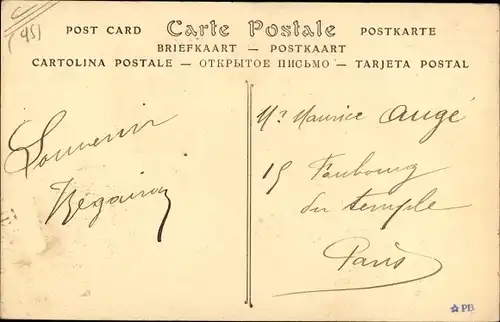 (45)
POST CARD Carte Postale POSTKARTE
BRIEFKAART — POSTKAART
CARTOLINA POSTALE — ОТКРЫТОЕ ПИСЬМО — TARJETA POSTAL
Souvenir
Mr. Maurice Augé
15 Faubourg
du temple
Paris
PB